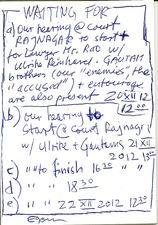 WAITING FOR
a) Our hearing @ court
RAJNAGAR to start +
for lawyer Mr. Rao w/
Ulrike Reinhard. GAUTAM
brothers (our "enemies", the
"accused") + entourage
are also present 20 XII 12
12:00
b) our hearing to
start @ Court Rajnagar
w/ Ulrike + Gautams 21 XII
2012
c) " " to finish 16 30 " "
d) " " 18 30 " "
e) " " 22 XII 2012 12 30